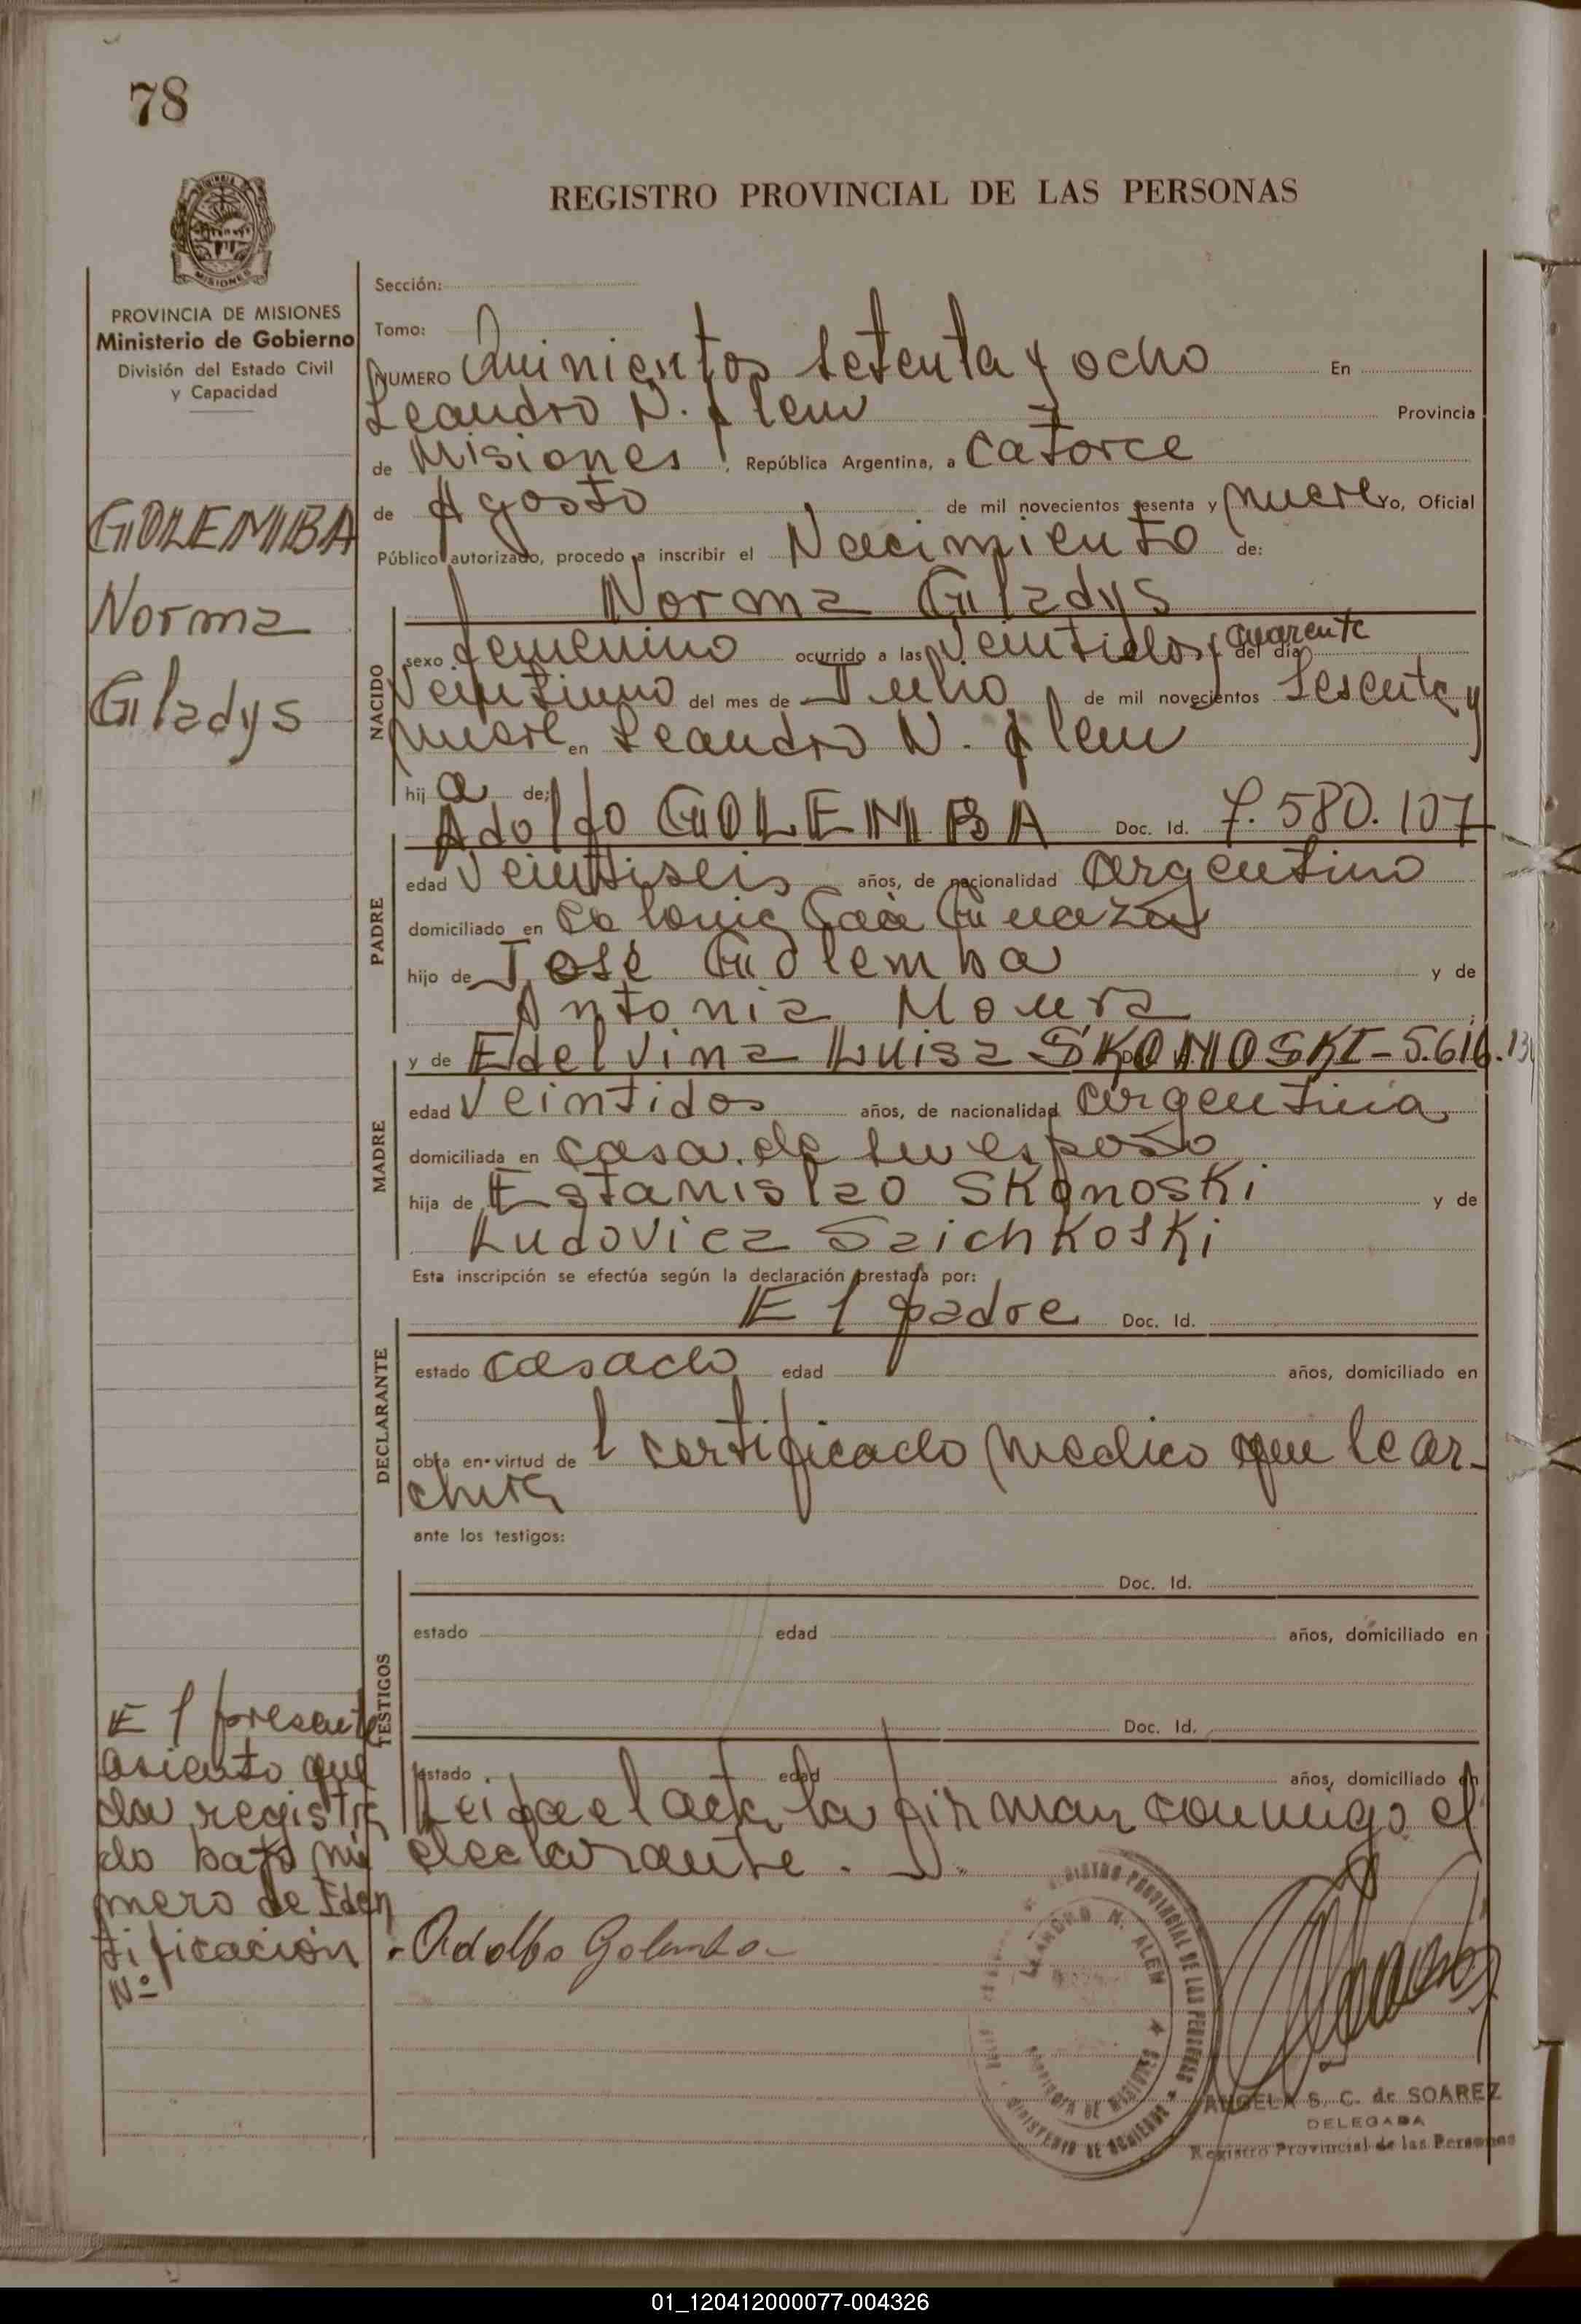 78
REGISTRO PROVINCIAL DE LAS PERSONAS
MISIONES
PROVINCIA DE MISIONES
Ministerio de Gobierno
División del Estado Civil
y Capacidad
GOLEMBA
Norma
Gladys
Sección:
Tomo:
NUMERO Quinientos setenta y ocho En
Leandro N. Alem Provincia
de Misiones, República Argentina, a catorce
de Agosto de mil novecientos sesenta y nueve yo, Oficial
Público autorizado, procedo a inscribir el Nacimiento de:
Norma Gladys
NACIDO
sexo femenino ocurrido a las Veintidos y cuarenta del día
Veintiuno del mes de Julio de mil novecientos sesenta y
nueve en Leandro N. Alem
hij a de:
Adolfo GOLEMBA Doc. Id. 7.580.107
PADRE
edad Veintiseis años, de nacionalidad argentino
domiciliado en Colonia Caá Guazú
hijo de José Golemba y de
Antonia Moura
y de Edelvina Luisa SKONOSKI - 5.616.
MADRE
edad Veintidos años, de nacionalidad argentina
domiciliada en casa de su esposo
hija de Estanislao Skonoski y de
Ludovica Szichkoski
Esta inscripción se efectúa según la declaración prestada por:
El padre Doc. Id.
DECLARANTE
estado casado edad años, domiciliado en
obra en virtud de l certificado medico que se ar-
chiva
ante los testigos:
TESTIGOS
Doc. Id.
estado edad años, domiciliado en
Doc. Id.
estado edad años, domiciliado en
Leida el acta la firman conmigo el
declarante.
El presente
asiento que
da registra
do bajo nú
mero de Iden
tificación
Nº
Adolfo Golemba
REGISTRO PROVINCIAL DE LAS PERSONAS
LEANDRO N. ALEM
PROVINCIA DE MISIONES
MINISTERIO DE GOBIERNO
ANGELA S. C. de SOAREZ
DELEGADA
Registro Provincial de las Personas
01_120412000077-004326